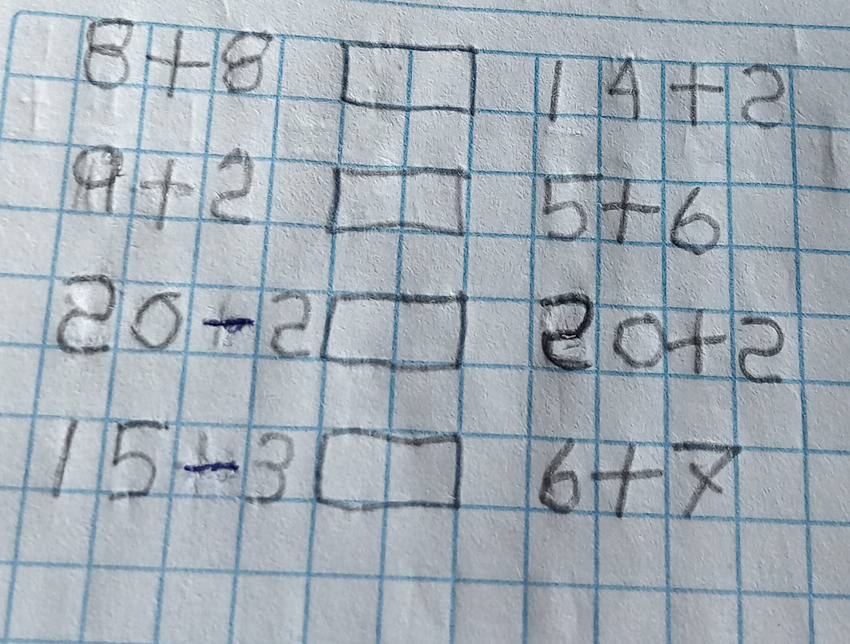 8+8 □ 14+2
9+2 □ 5+6
20-2 □ 20+2
15-3 □ 6+7